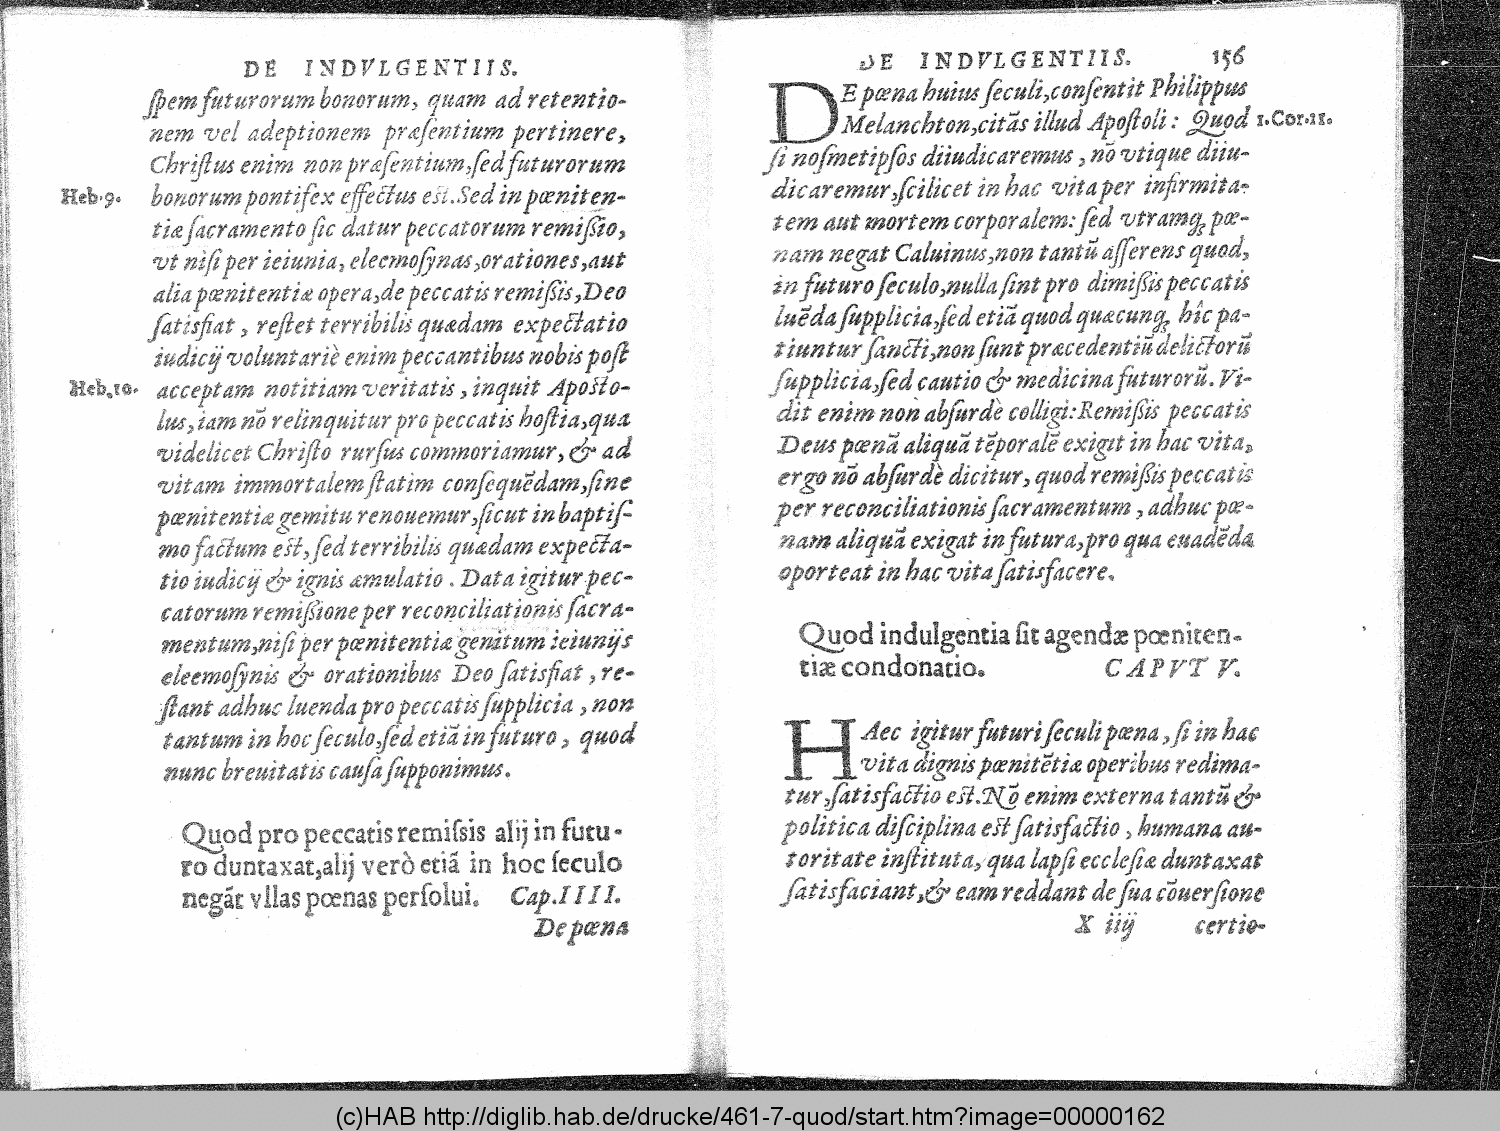 DE INDVLGENTIIS.
ſpem futurorum bonorum, quam ad retentio-
nem vel adeptionem præſentium pertinere,
Chriſtus enim non præſentium, ſed futurorum
Heb.9.
bonorum pontifex effectus est. Sed in pœniten-
tiæ ſacramento ſic datur peccatorum remiſsio,
vt niſi per ieiunia, eleemoſynas, orationes, aut
alia pœnitentiæ opera, de peccatis remiſsis, Deo
ſatisfiat, reſtet terribilis quædam expectatio
iudicij voluntariè enim peccantibus nobis poſt
Heb.10.
acceptam notitiam veritatis, inquit Aposto-
lus, iam nõ relinquitur pro peccatis hoſtia, qua
videlicet Chriſto rurſus commoriamur, & ad
vitam immortalem ſtatim conſequẽdam, ſine
pœnitentiæ gemitu renouemur, ſicut in baptiſ-
mo factum est, ſed terribilis quædam expecta-
tio iudicij & ignis æmulatio. Data igitur pec-
catorum remiſsione per reconciliationis ſacra-
mentum, niſi per pœnitentiæ gemitum ieiunijs
eleemoſynis & orationibus Deo ſatisfiat, re-
ſtant adhuc luenda pro peccatis ſupplicia, non
tantum in hoc ſeculo, ſed etiã in futuro, quod
nunc breuitatis cauſa ſupponimus.
Quod pro peccatis remiſsis alij in futu-
ro duntaxat, alij verò etiã in hoc ſeculo
negãt vllas pœnas perſolui. Cap. IIII.
De pœna
DE INDVLGENTIIS. 156
DE pœna huius ſeculi, conſentit Philippus
Melanchton, citãs illud Apoſtoli: Quod
1.Cor.11.
ſi noſmetipſos diiudicaremus, nõ vtique diiu-
dicaremur, ſcilicet in hac vita per infirmita-
tem aut mortem corporalem: ſed vtramq; pœ-
nam negat Caluinus, non tantũ aſſerens quod,
in futuro ſeculo, nulla ſint pro dimiſsis peccatis
luẽda ſupplicia, ſed etiã quod quæcunq; hîc pa-
tiuntur ſancti, non ſunt præcedentiũ delictorũ
ſupplicia, ſed cautio & medicina futurorũ. Vi-
dit enim non abſurdè colligi: Remiſsis peccatis
Deus pœnã aliquã tẽporalẽ exigit in hac vita,
ergo nõ abſurdè dicitur, quod remiſsis peccatis
per reconciliationis ſacramentum, adhuc pœ-
nam aliquã exigat in futura, pro qua euadẽda
oporteat in hac vita ſatisfacere.
Quod indulgentia ſit agendæ pœniten-
tiæ condonatio. CAPVT V.
HAec igitur futuri ſeculi pœna, ſi in hac
vita dignis pœnitẽtiæ operibus redima-
tur, ſatisfactio est. Nõ enim externa tantũ &
politica diſciplina est ſatisfactio, humana au-
toritate inſtituta, qua lapſi eccleſiæ duntaxat
ſatisfaciant, & eam reddant de ſua cõuerſione
X iiij certio-
(c)HAB http://diglib.hab.de/drucke/461-7-quod/start.htm?image=00000162